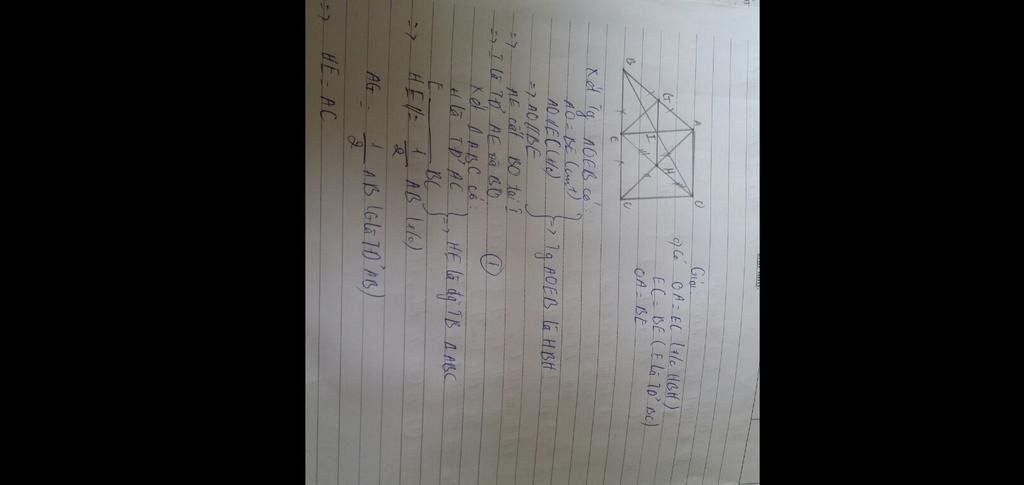 A
O
G
I
H
B
E
C
Giải
a) Có OA = EC (t/c HBH)
EC = BE (E là TĐ' BC)
OA = BE
Xét Tg AOEB có:
AO = BE (cmt)
AO // EC (t/c)
=> AO // BE
=> Tg AOEB là HBH
=> AE cắt BO tại I
=> I là TĐ' AE và BO ①
Xét Δ ABC có:
H là TĐ' AC
E BC
=> HE là đg TB Δ ABC
=> HE // = 1/2 AB (t/c)
AG = 1/2 AB (G là TĐ' AB)
=> HE = AC